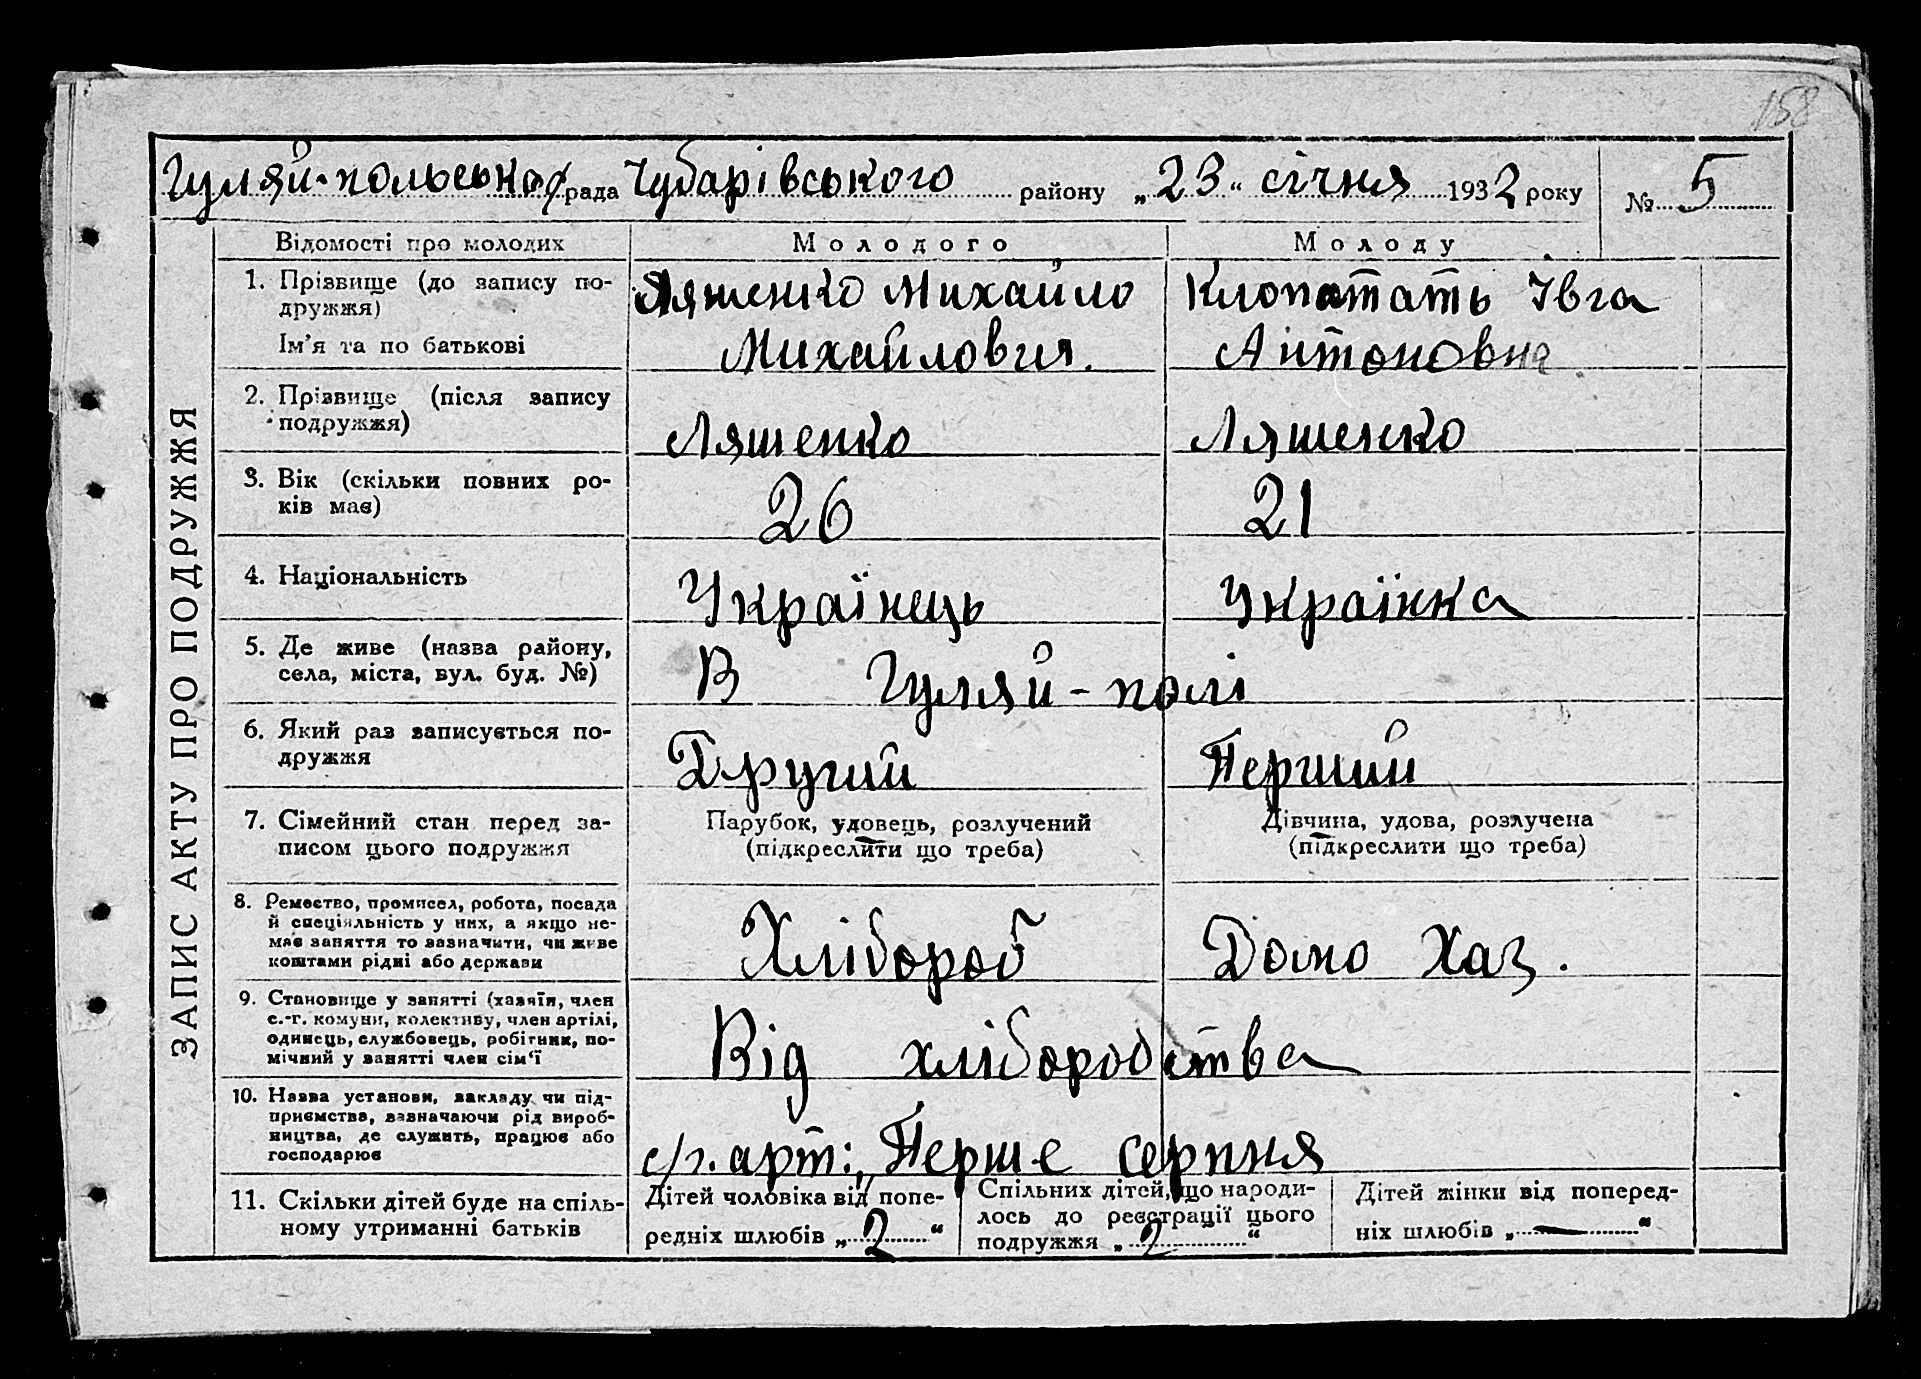 158
Гуляй-польська рада Чубарівського району „23“ січня 1932 року № 5
ЗАПИС АКТУ ПРО ПОДРУЖЖЯ
Відомості про молодих Молодого Молоду
1. Прізвище (до запису по-
дружжя)
Ім'я та по батькові
Ляшенко Михайло
Михайлович.
Клопотать Івга
Антоновна
2. Прізвище (після запису
подружжя)
Ляшенко Ляшенко
3. Вік (скільки повних ро-
ків має)
26 21
4. Національність
Українець Українка
5. Де живе (назва району,
села, міста, вул. буд. №)
В Гуляй-полі
6. Який раз записується по-
дружжя
Другий Перший
7. Сімейний стан перед за-
писом цього подружжя
Парубок, удовець, розлучений
(підкреслити що треба)
Дівчина, удова, розлучена
(підкреслити що треба)
8. Ремество, промисел, робота, посада
й спеціяльність у них, а якщо не-
має заняття то зазначити, чи живе
коштами рідні або держави
Хлібороб Домо Хаз.
9. Становище у занятті (хазяїн, член
с.-г. комуни, колективу, член артілі,
одинець, службовець, робітник, по-
мічний у занятті член сім'ї
Від хліборобства
10. Назва установи, закладу чи під-
приємства, зазначаючи рід вироб-
ництва, де служить, працює або
господарює
с/г. арт: „Перше серпня
11. Скільки дітей буде на спіль-
ному утриманні батьків
Дітей чоловіка від попе-
редніх шлюбів „2“
Спільних дітей, що народи-
лось до реєстрації цього
подружжя „2“
Дітей жінки від поперед-
ніх шлюбів „—“